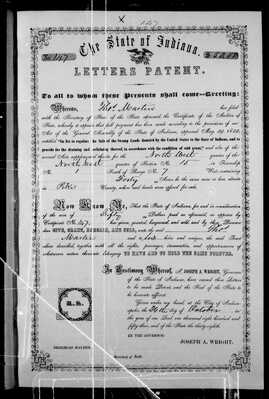 147
The State of Indiana.
No 147
LETTERS PATENT.
To all to whom these Presents shall come—Greeting:
Whereas, Thos. Martin has filed
with the Secretary of State of the State aforesaid the Certificate of the Auditor of
State, whereby it appears that full payment has been made according to the provisions of an
Act of the General Assembly of the State of Indiana, approved May
entitled "An Act to regulate the Sale of the Swamp Lands donated by the United States to the State of Indiana, and to
provide for the draining and reclaiming thereof in accordance with the condition of said grant," and also of the
several Acts supplemental thereto for the North West quarter of the
North West quarter of Section No. 15 in Township
South of Range No. 7 West containing
Forty Acres be the same more or less situate
in Pike County, when said lands were offered for sale.
Now Know Ye, That the State of Indiana, for and in consideration
of the sum of Fifty Dollars paid as aforesaid, as appears by
Certificate No. 147, has given, granted, bargained and sold, and by these Presents
does GIVE, GRANT, BARGAIN, AND SELL, unto the said Thos
Martin and to his heirs and assigns, the said Tract
above described, together with all the rights, privileges, immunities, and appurtenances of
whatsoever nature thereunto belonging, TO HAVE AND TO HOLD THE SAME FOREVER.
In Testimony Whereof, I, JOSEPH A. WRIGHT, Governor
of the State of Indiana, have caused these Letters
to be made Patent, and the Seal of the State to
be hereunto affixed.
Given under my hand, at the City of Indianapolis,
the 26th day of October in
the year of our Lord one thousand eight hundred and
fifty-three and of the State the thirty-eighth.
BY THE GOVERNOR:
JOSEPH A. WRIGHT.
NEHEMIAH HAYDEN,
Secretary of State.